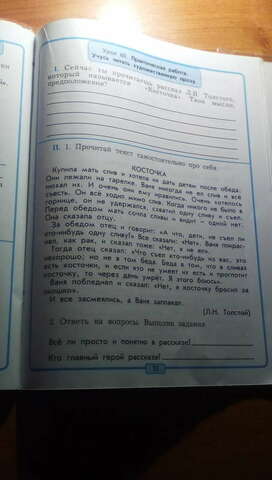 Урок 61. Практическая работа.
Учусь читать художественную прозу
I. Сейчас ты прочитаешь рассказ Л.Н. Толстого,
который называется «Косточка». Твои мысли,
предположения?
II. 1. Прочитай текст самостоятельно про себя.
КОСТОЧКА
Купила мать слив и хотела их дать детям после обеда.
Они лежали на тарелке. Ваня никогда не ел слив и всё
нюхал их. И очень они ему нравились. Очень хотелось
съесть. Он всё ходил мимо слив. Когда никого не было в
горнице, он не удержался, схватил одну сливу и съел.
Перед обедом мать сочла сливы и видит – одной нет.
Она сказала отцу.
За обедом отец и говорит: «А что, дети, не съел ли
кто-нибудь одну сливу?» Все сказали: «Нет». Ваня покрас-
нел, как рак, и сказал тоже: «Нет, я не ел».
Тогда отец сказал: «Что съел кто-нибудь из вас, это
нехорошо; но не в том беда. Беда в том, что в сливах
есть косточки, и если кто не умеет их есть и проглотит
косточку, то через день умрёт. Я этого боюсь».
Ваня побледнел и сказал: «Нет, я косточку бросил за
окошко».
И все засмеялись, а Ваня заплакал.
(Л.Н. Толстой)
2. Ответь на вопросы. Выполни задания
Всё ли просто и понятно в рассказе?
Кто главный герой рассказа?